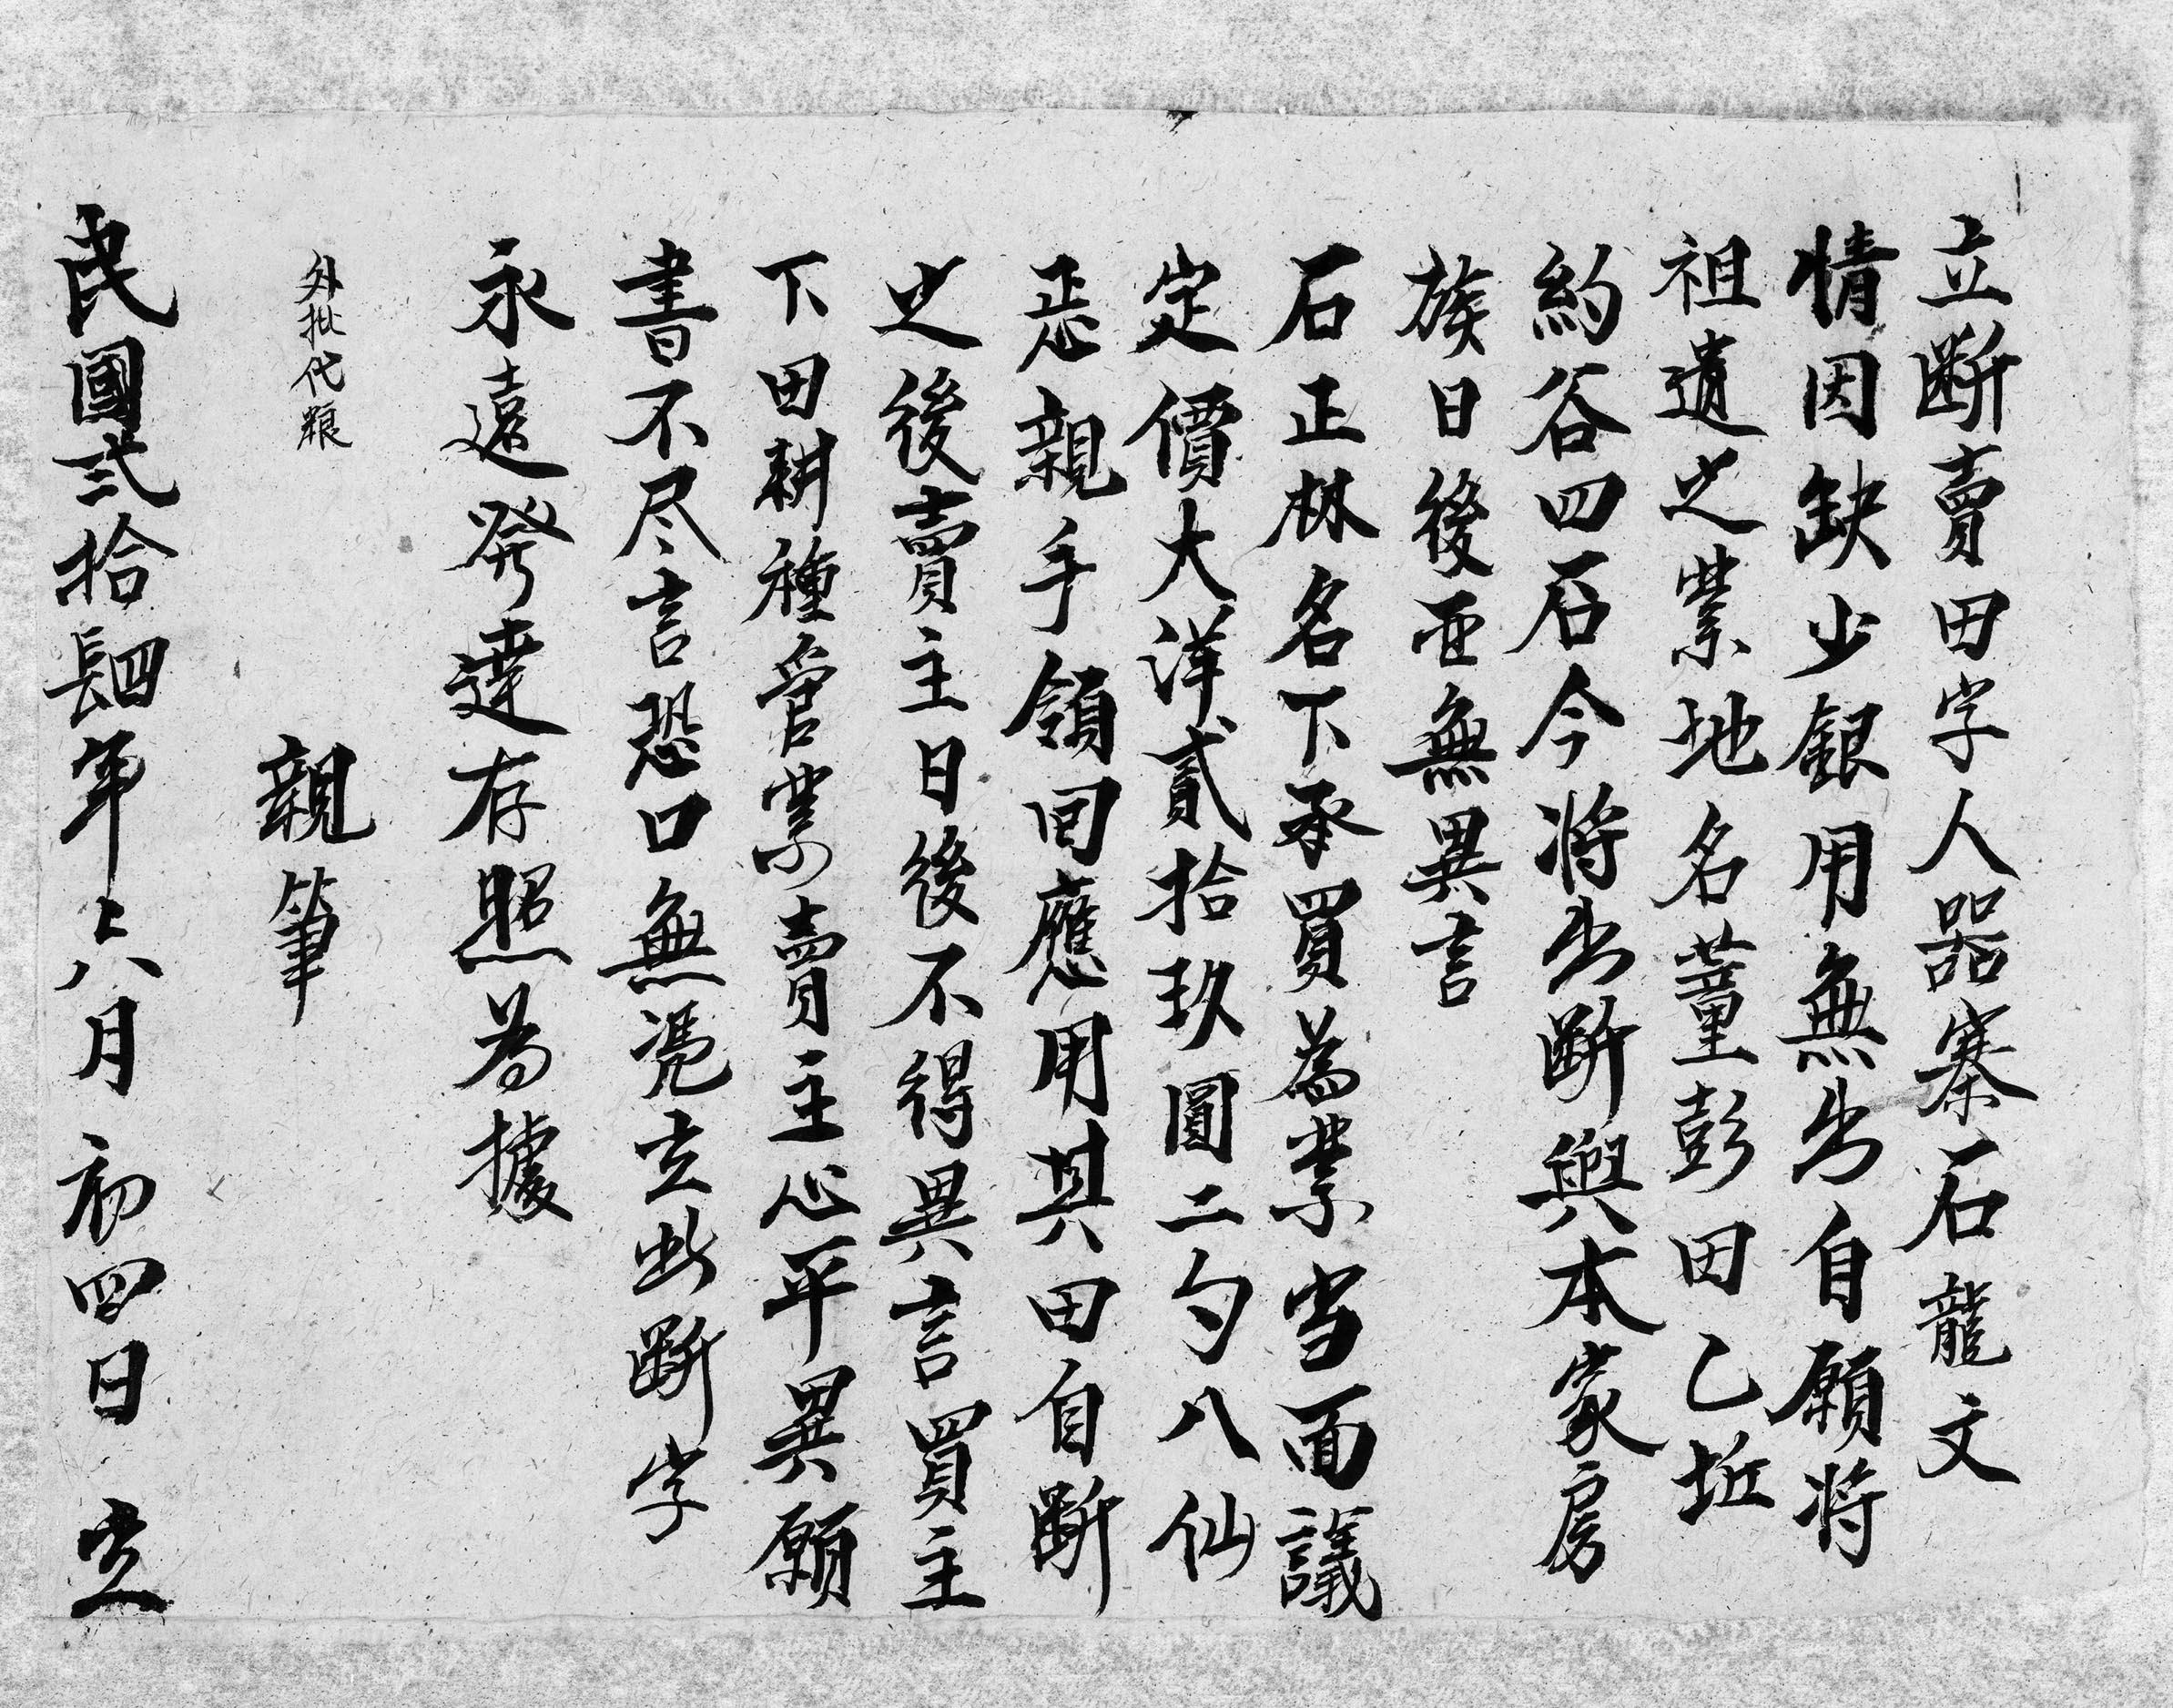 立断賣田字人器寨石龍文
情因缺少銀用無出自願将
祖遺之業地名董彭田乙坵
約谷四石今将出断與本家房
族日後並無異言
石正林名下承買為業当面議
定價大洋貳拾玖圓二勺八仙
恁親手領回應用其田自断
之後賣主日後不得異言買主
下田耕種管業賣主心平異願
書不尽言恐口無憑立此断字
永遠發達存照為據
外批代粮
親筆
民國貳拾肆年六月初四日立